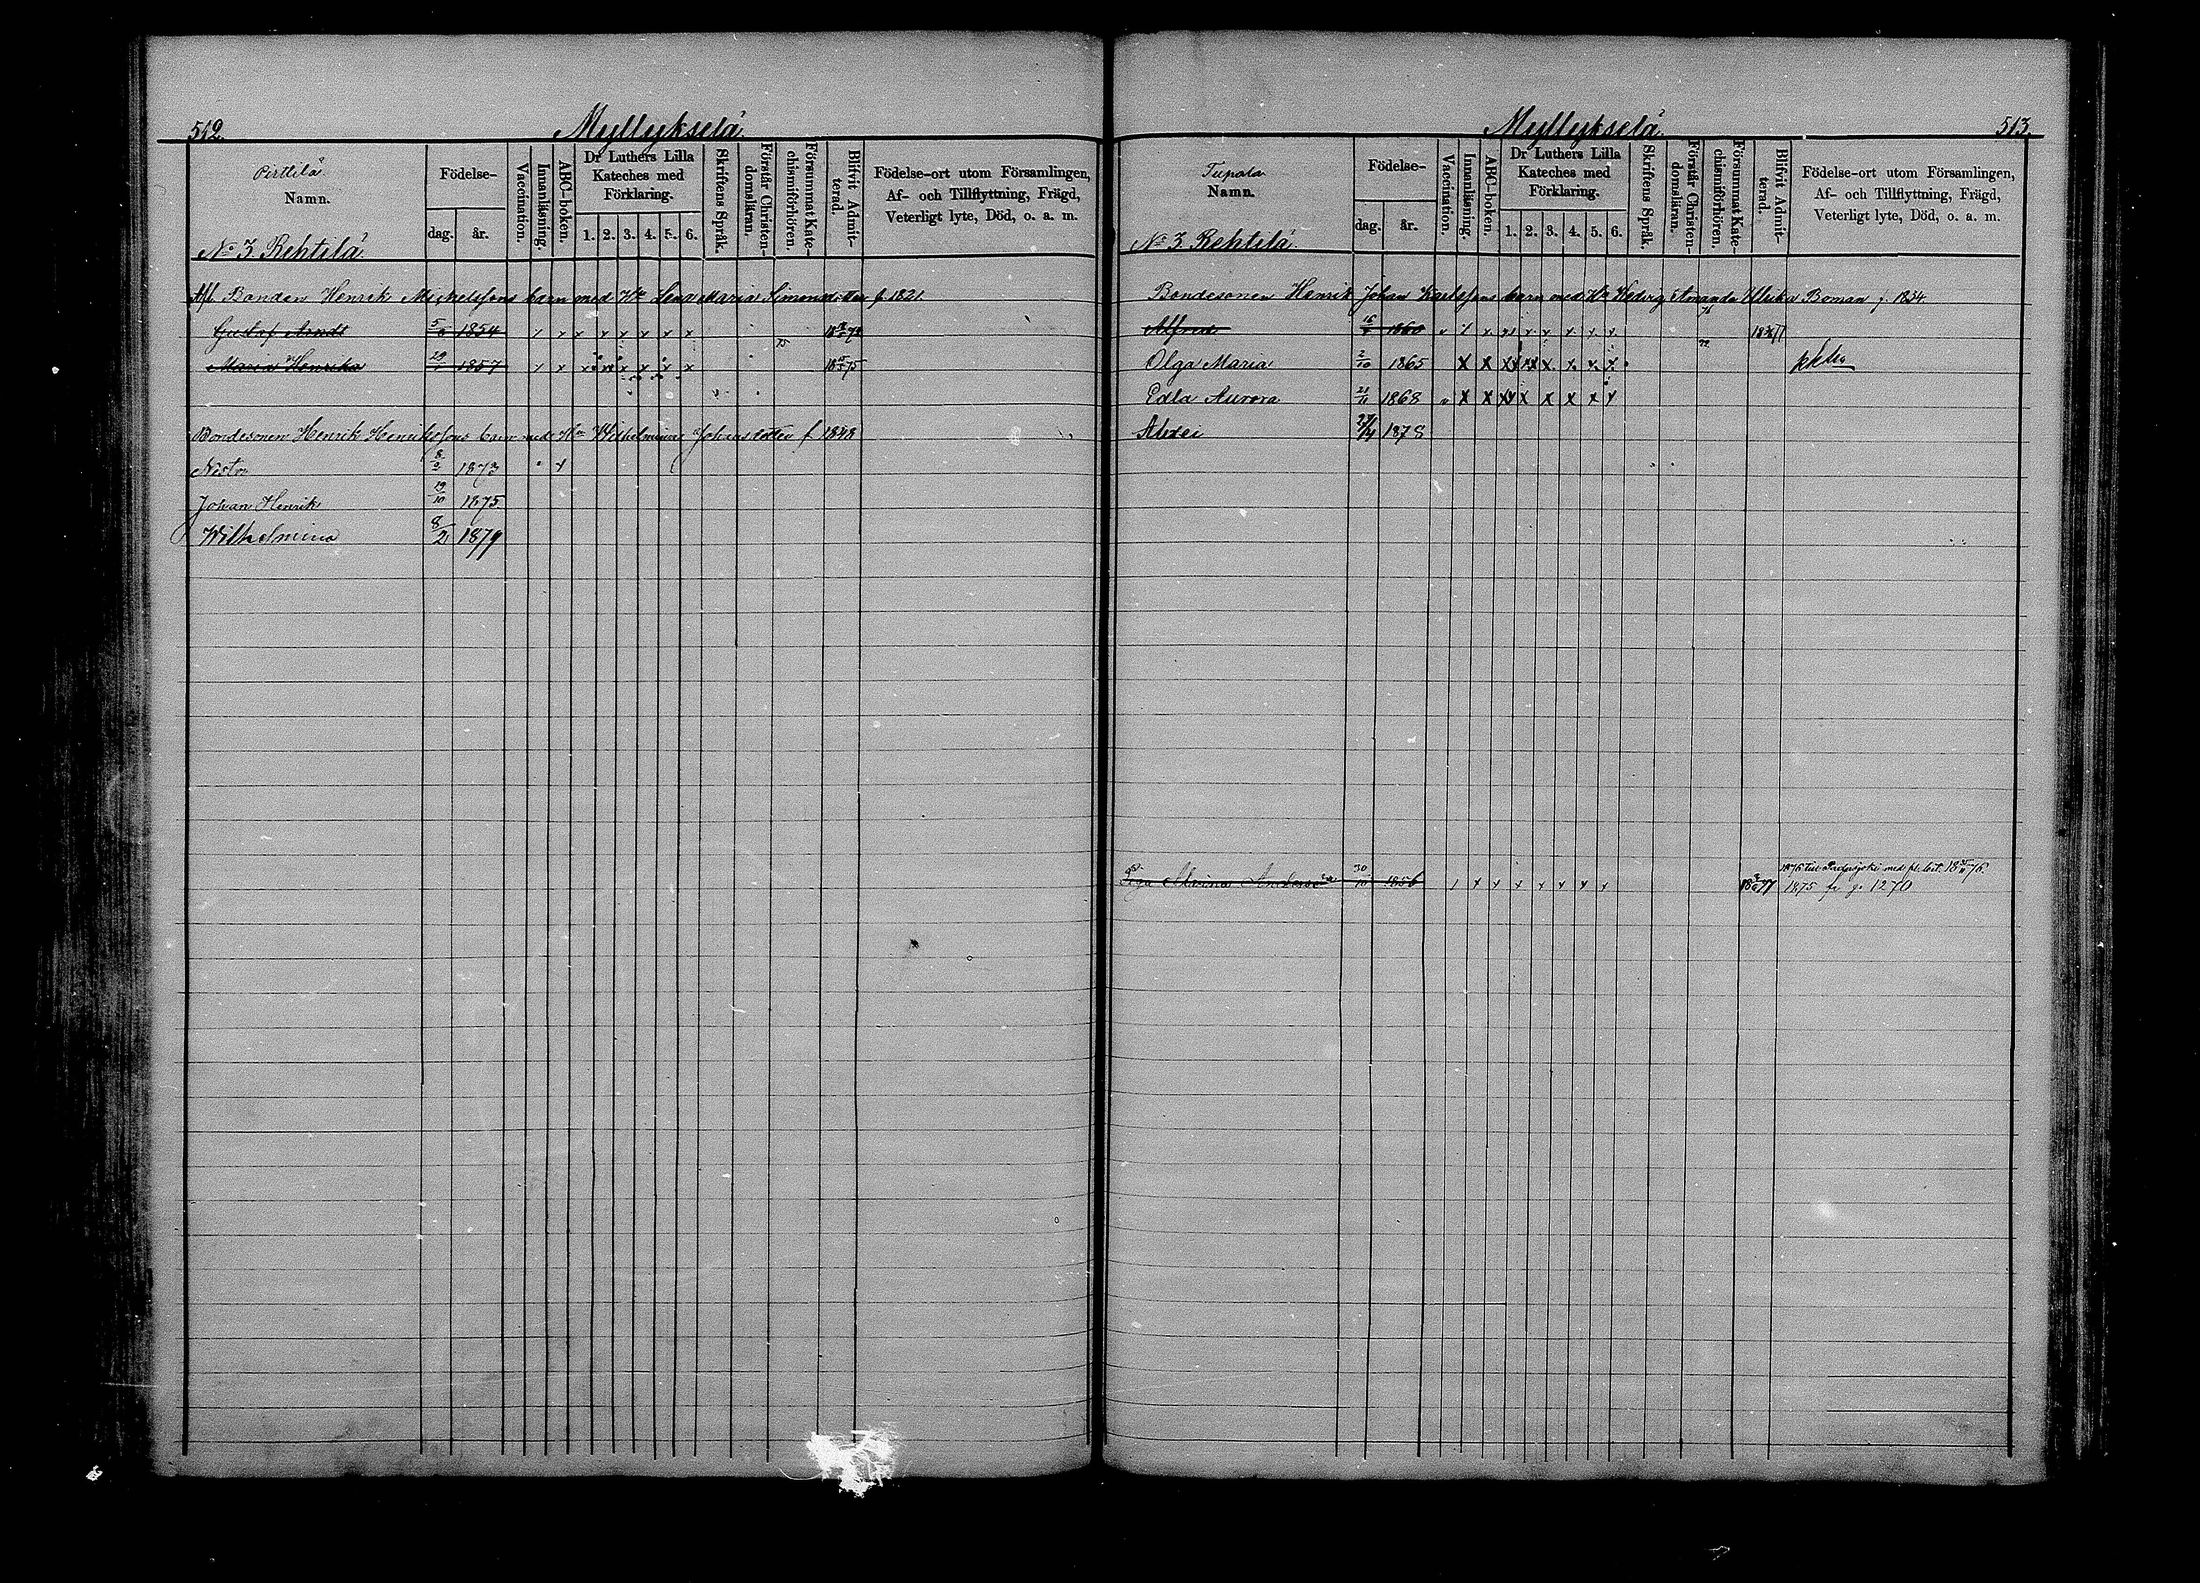 512.
Myllykselä
Pirttilä
Namn.
No 3. Rehtilä.
Födelse-
dag. år.
Vaccination.
Innanläsning.
ABC-boken.
Dr Luthers Lilla
Kateches med
Förklaring.
1. 2. 3. 4. 5. 6.
Skriftens Språk.
Förstår Christen-
domsläran.
Försummat Kate-
chismiförhören.
Blifvit Admit-
terad.
Födelse-ort utom Församlingen,
Af- och Tillflyttning, Frägd,
Veterligt lyte, Död, o. a. m.
Bonden Henrik Michelssons barn med Hu Lena Maria Simonsdotter f. 1821.
Gustaf 1854 x x x x x x x
75
Maria Henrika 1857 x x x x x x x 75
Bondesonen Henrik Henrikssons barn med Hu Wilhelmina Johansdotter f 1848
Nestor 8/2 1873
Johan Henrik 19/10 1875
Wilhelmina 8/2 1879
513.
Myllykselä
Tupala
Namn.
No 3. Rehtilä.
Födelse-
dag. år.
Vaccination.
Innanläsning.
ABC-boken.
Dr Luthers Lilla
Kateches med
Förklaring.
1. 2. 3. 4. 5. 6.
Skriftens Språk.
Förstår Christen-
domsläran.
Försummat Kate-
chismiförhören.
Blifvit Admit-
terad.
Födelse-ort utom Församlingen,
Af- och Tillflyttning, Frägd,
Veterligt lyte, Död, o. a. m.
Bondesonen Henrik Johan Karlssons barn med Hu Hedvig Amanda Ulrika Boman f. 1854
Alfred 1860 x x x x x x
Olga Maria 2/10 1865 x x x x x x x x
Edla Aurora 21/11 1868 x x x x x x x x
Alexei 1878
1876 till med pr. bet. 18 76.
Maria 30/10 1856 x x x x x x x 1875 fr p. 1270